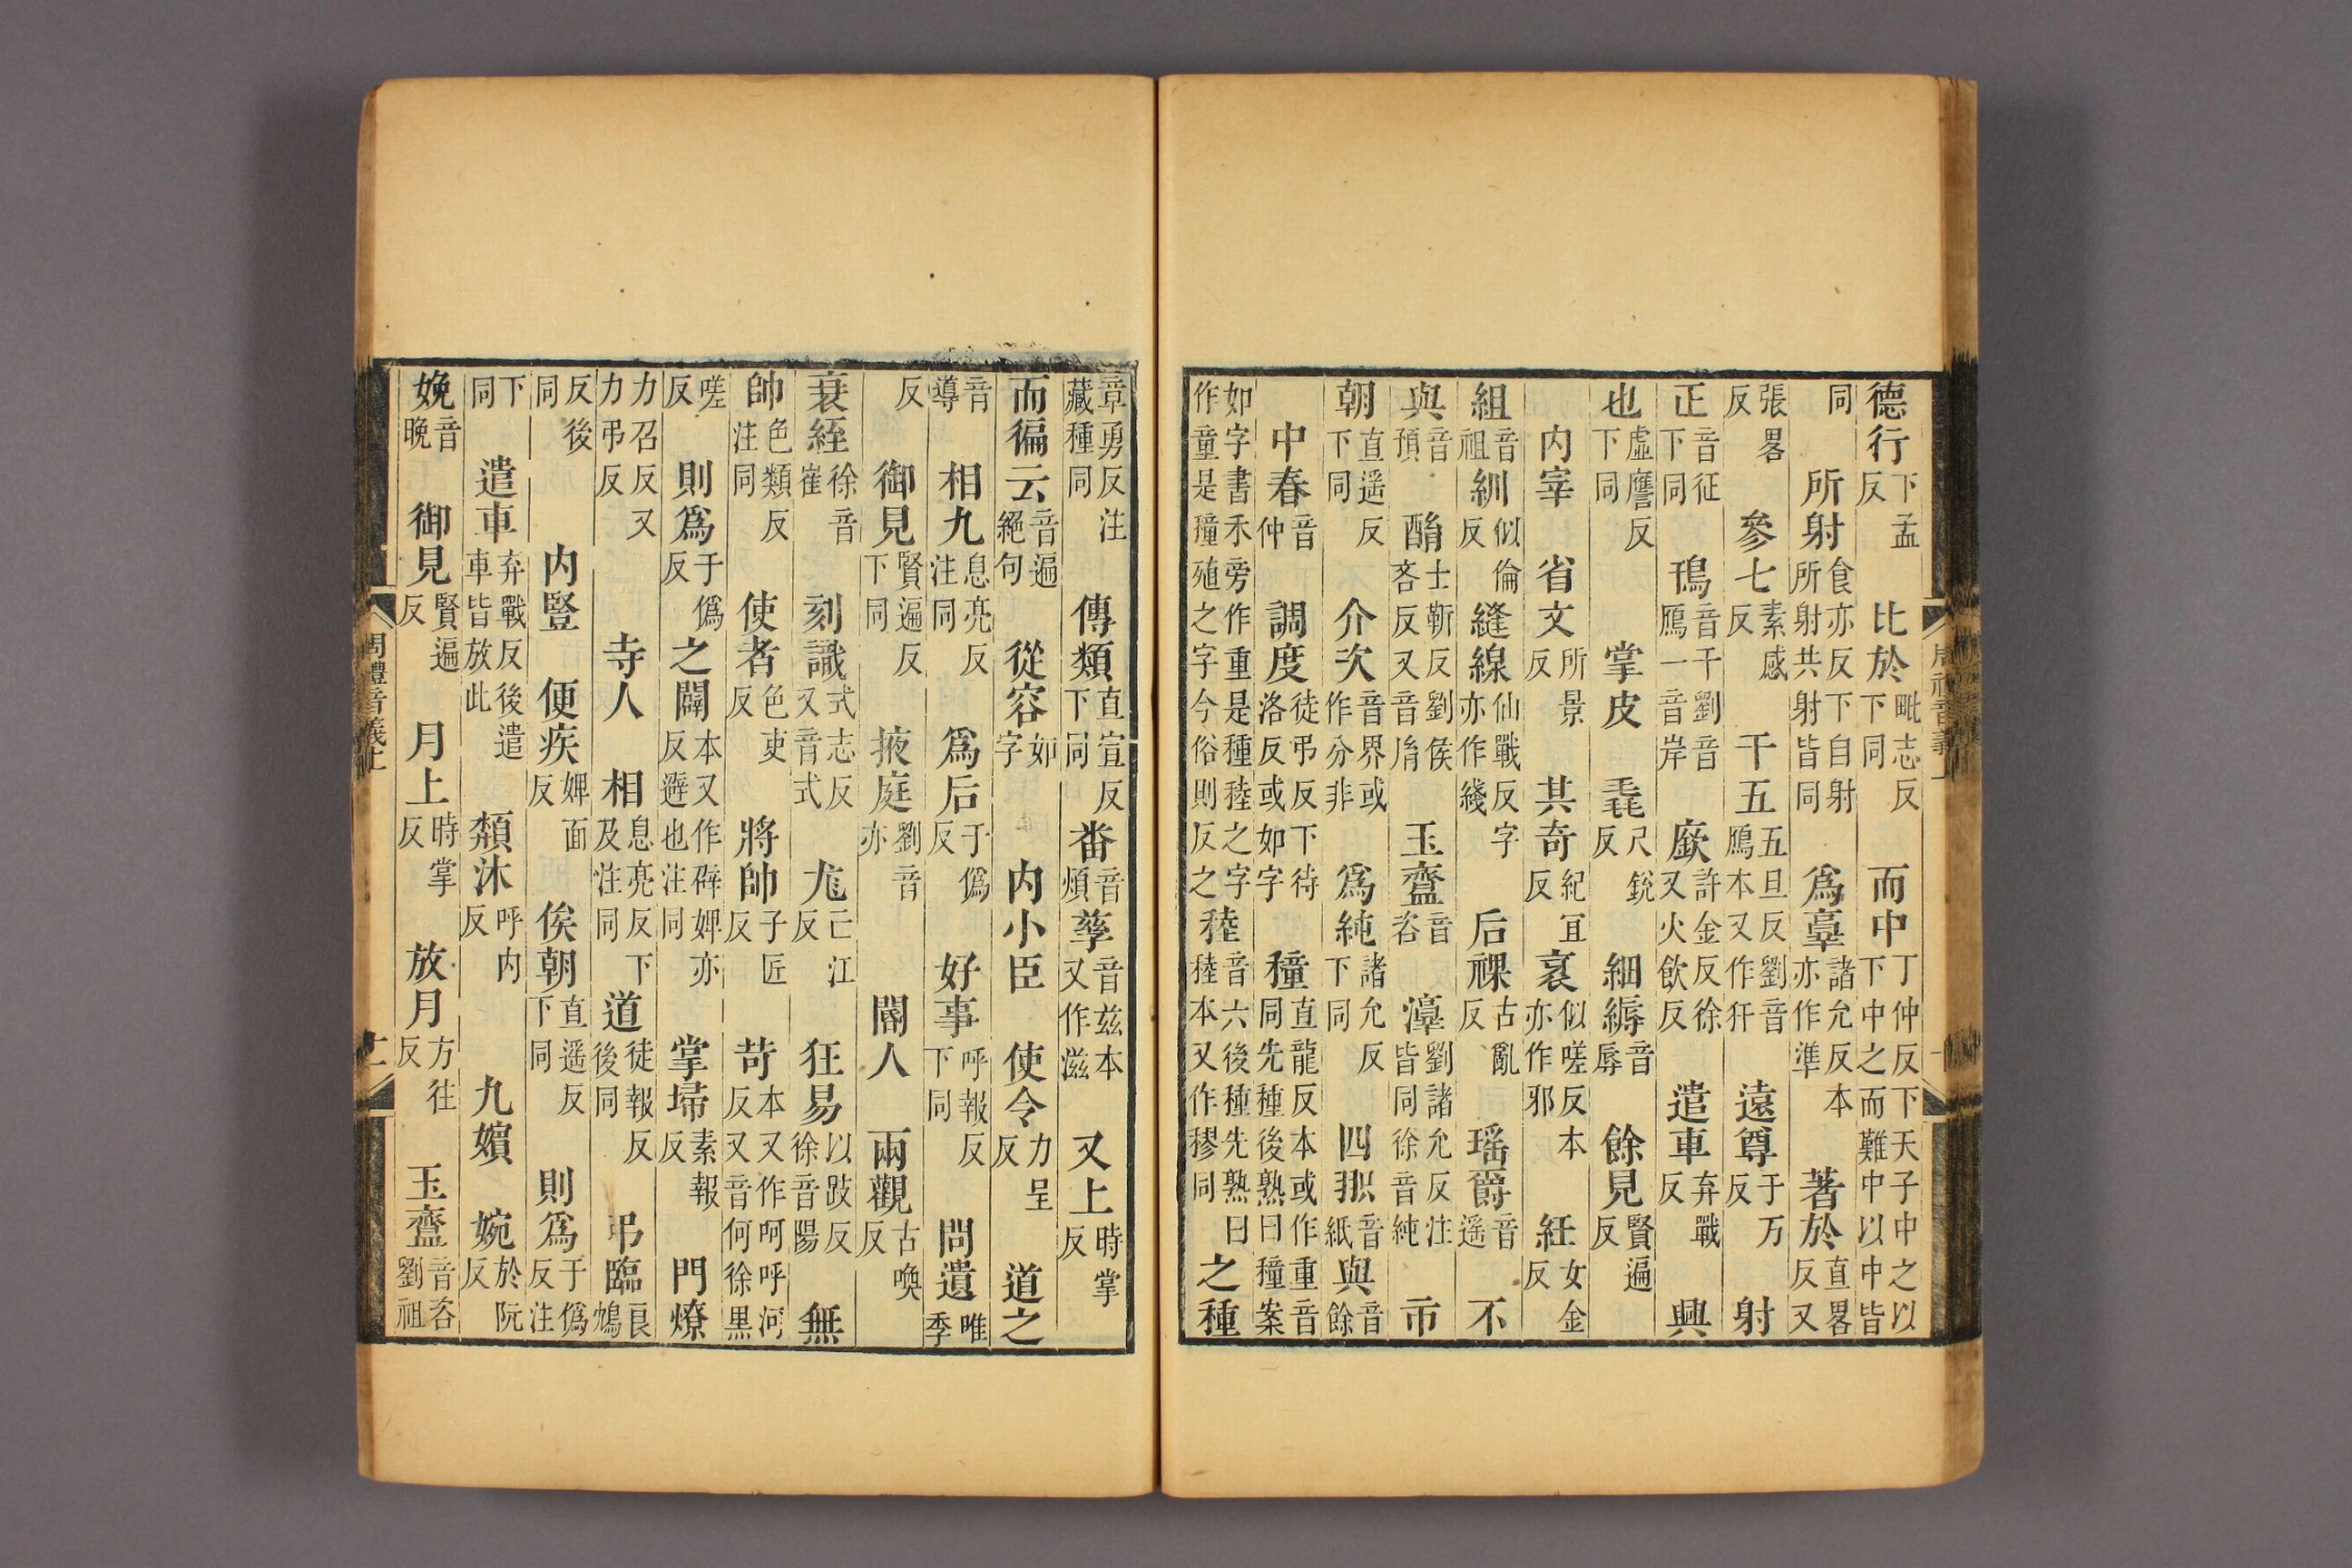 德行下孟反 比於毗志反下同 而中丁仲反下天子中之以下中之而難中以中皆
同 所射食亦反下自射所射共射射皆同 爲辜諸允反本亦作準 著於直畧反又
張畧反 參七素感反 干五五旦反劉音鴈本又作犴 遠尊于万反 射
正音征下同 鳱音干劉音鴈一音岸 廞許金反徐又火飲反 遣車弃戰反 興
也虛譍反下同 掌皮 毳尺銳反 細縟音辱 餘見賢遍反
内宰 省文所景反 其奇紀宜反 衺似嗟反本亦作邪 紝女金反
組音祖 紃似倫反 縫線仙戰反字亦作綫 后祼古亂反 瑤爵音遥 不
與音預 酳士靳反劉侯吝反又音胤 玉齍音咨 淳劉諸允反注皆同徐音純 市
朝直遥反下同 介次音界或作分非 爲純諸允反下同 四㧗音紙 與音餘
中春音仲 調度徒弔反下待洛反或如字 穜直龍反本或作重音同先種後熟曰穜案
如字書禾旁作重是種稑之字作童是穜殖之字今俗則反之 稑音六後種先熟曰稑本又作穋同 之種
章勇反注藏種同 傳類直宣反下同 蕃音煩 孳音兹本又作滋 又上時掌反
而徧云音遍絕句 從容如字 内小臣 使令力呈反 道之
音導 相九息亮反注同 爲后于僞反 好事呼報反下同 問遺唯季
反 御見賢遍反下同 掖庭劉音亦 閽人 兩觀古喚反
衰絰徐音崔 刻識式志反又音式 尨亡江反 狂易以豉反徐音陽 無
帥色類反注同 使者色吏反 將帥子匠反 苛本又作呵呼河反又音何徐黑
嗟反 則爲于僞反 之闢本又作辟婢亦反避也注同 掌埽素報反 門燎
力召反又力弔反 寺人 相息亮反下及注同 道徒報反後同 弔臨良鴆
反後同 内豎 便疾婢面反 俟朝直遥反下同 則爲于僞反注
下同 遣車弃戰反後遣車皆放此 頮沐呼内反 九嬪 婉於阮反
娩音晚 御見賢遍反 月上時掌反 放月方往反 玉齍音咨劉祖
周禮音義上